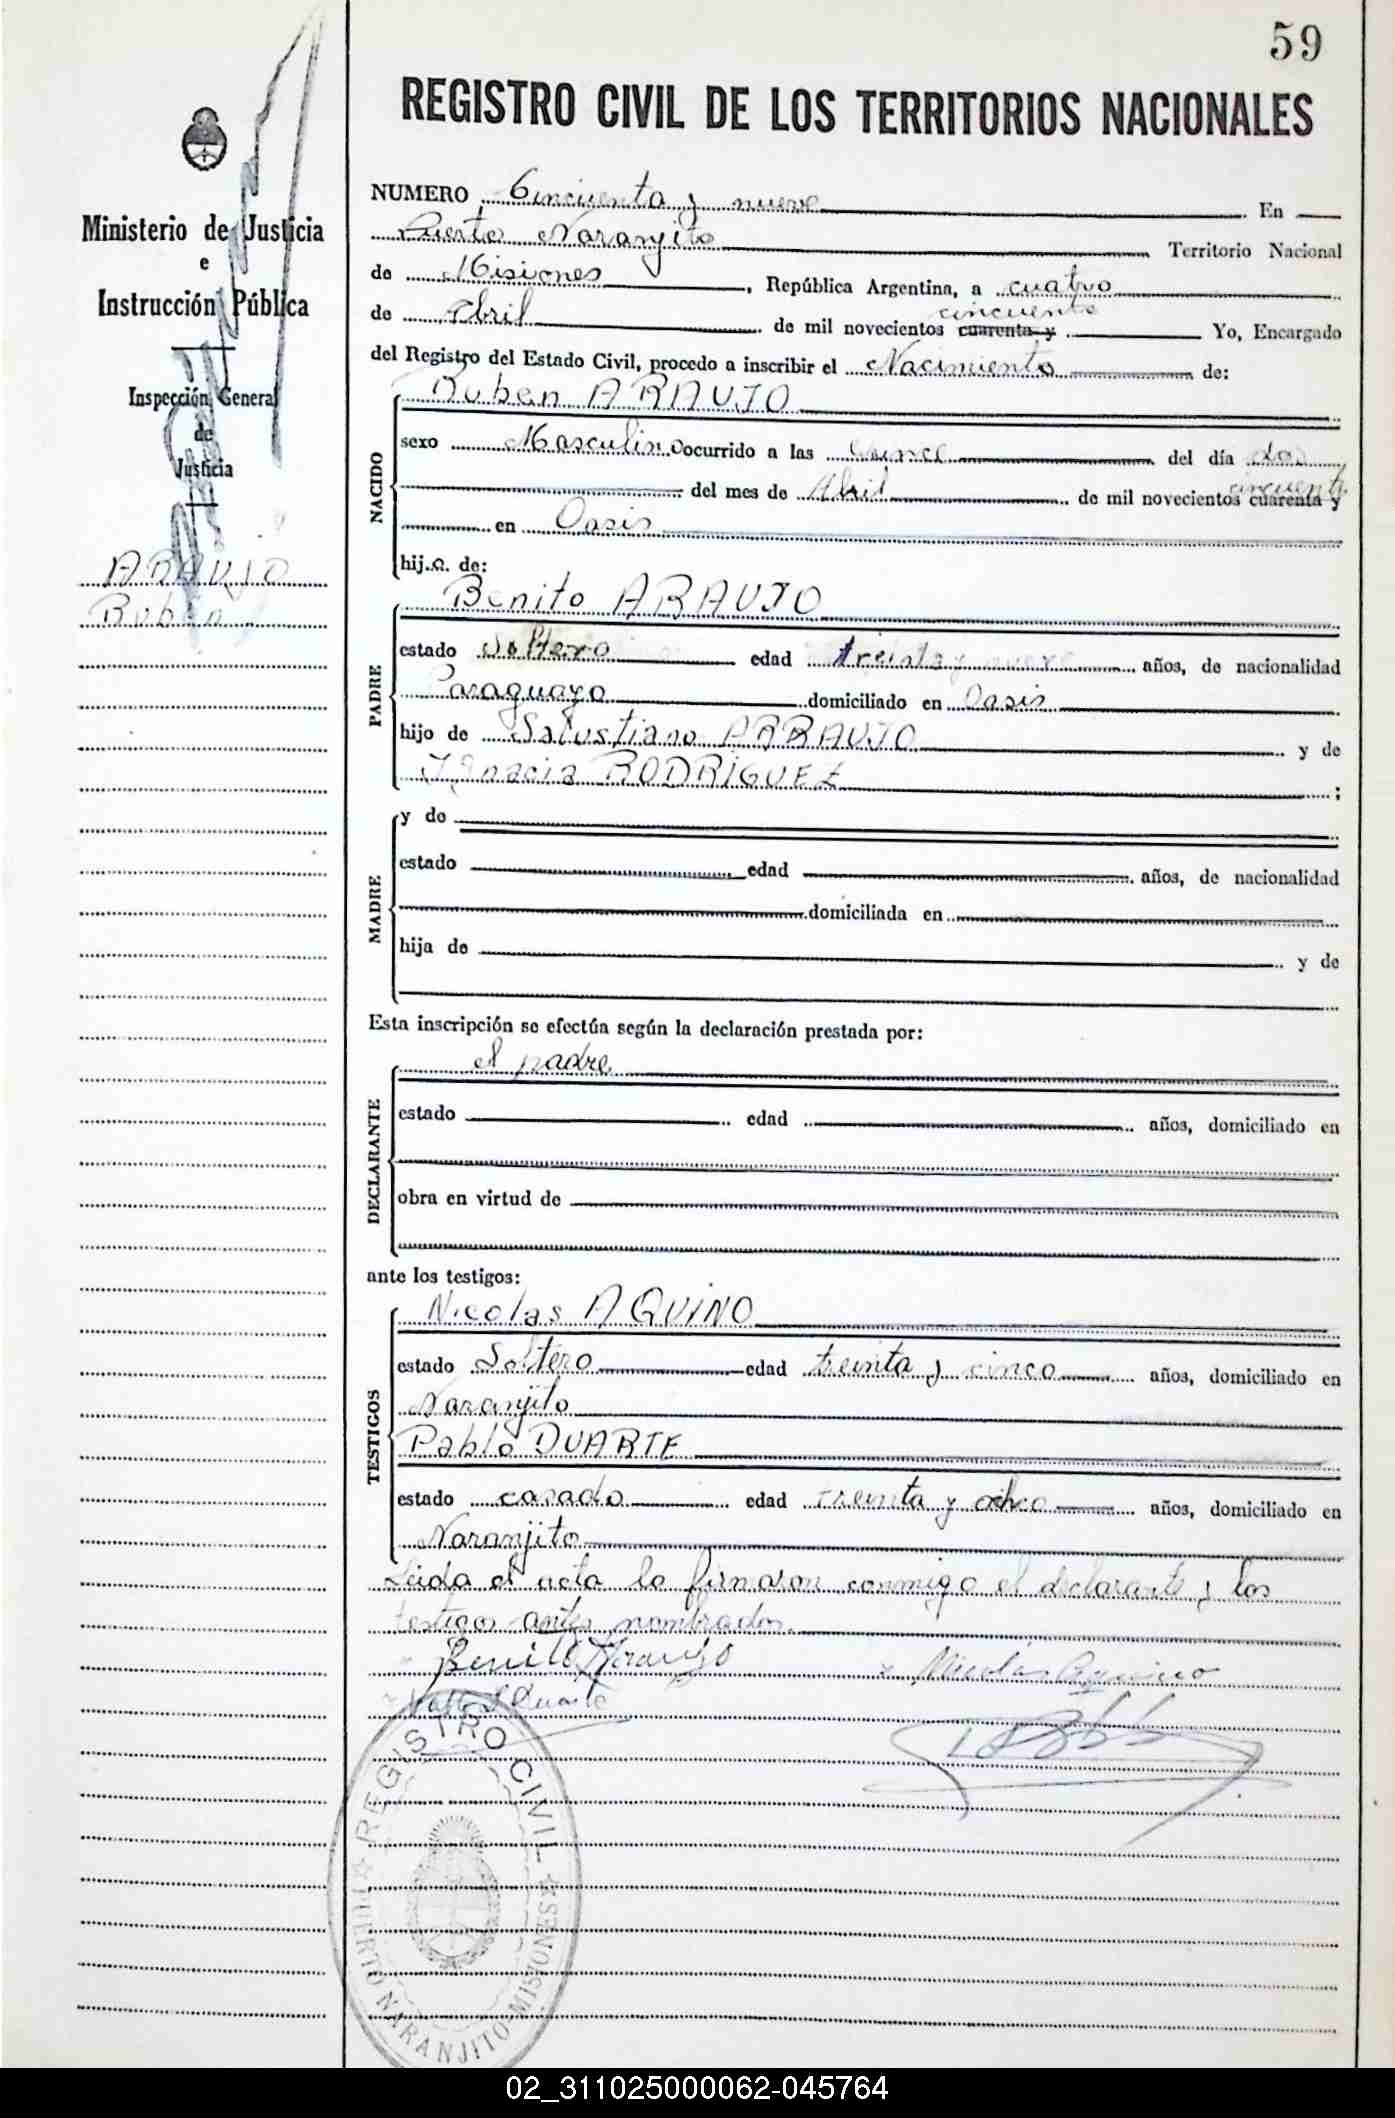 59
REGISTRO CIVIL DE LOS TERRITORIOS NACIONALES
Ministerio de Justicia
e
Instrucción Pública
Inspección General
de
Justicia
ARAUJO
Ruben
NUMERO Cincuenta y nueve En
Puerto Naranjito Territorio Nacional
de Misiones, República Argentina, a cuatro
de Abril de mil novecientos cuarenta y cincuenta Yo, Encargado
del Registro del Estado Civil, procedo a inscribir el Nacimiento de:
NACIDO
Ruben ARAUJO
sexo Masculino ocurrido a las del día dos
del mes de Abril de mil novecientos cuarenta y cincuenta
en Oasis
hijo de:
PADRE
Benito ARAUJO
estado Soltero edad treinta y nueve años, de nacionalidad
Paraguayo domiciliado en Oasis
hijo de Salustiano ARRAUJO y de
Ignacia RODRIGUEZ ;
MADRE
y de
estado edad años, de nacionalidad
domiciliada en
hija de y de
Esta inscripción se efectúa según la declaración prestada por:
DECLARANTE
el padre
estado edad años, domiciliado en
obra en virtud de
ante los testigos:
TESTIGOS
Nicolas AQUINO
estado Soltero edad treinta y cinco años, domiciliado en
Naranjito
Pablo DUARTE
estado casado edad treinta y ocho años, domiciliado en
Naranjito
Leida el acta la firmaron conmigo el declarante y los
testigos antes nombrados.
Benito Araujo Nicolás Aquino
Duarte
REGISTRO CIVIL
PUERTO NARANJITO MISIONES
02_311025000062-045764